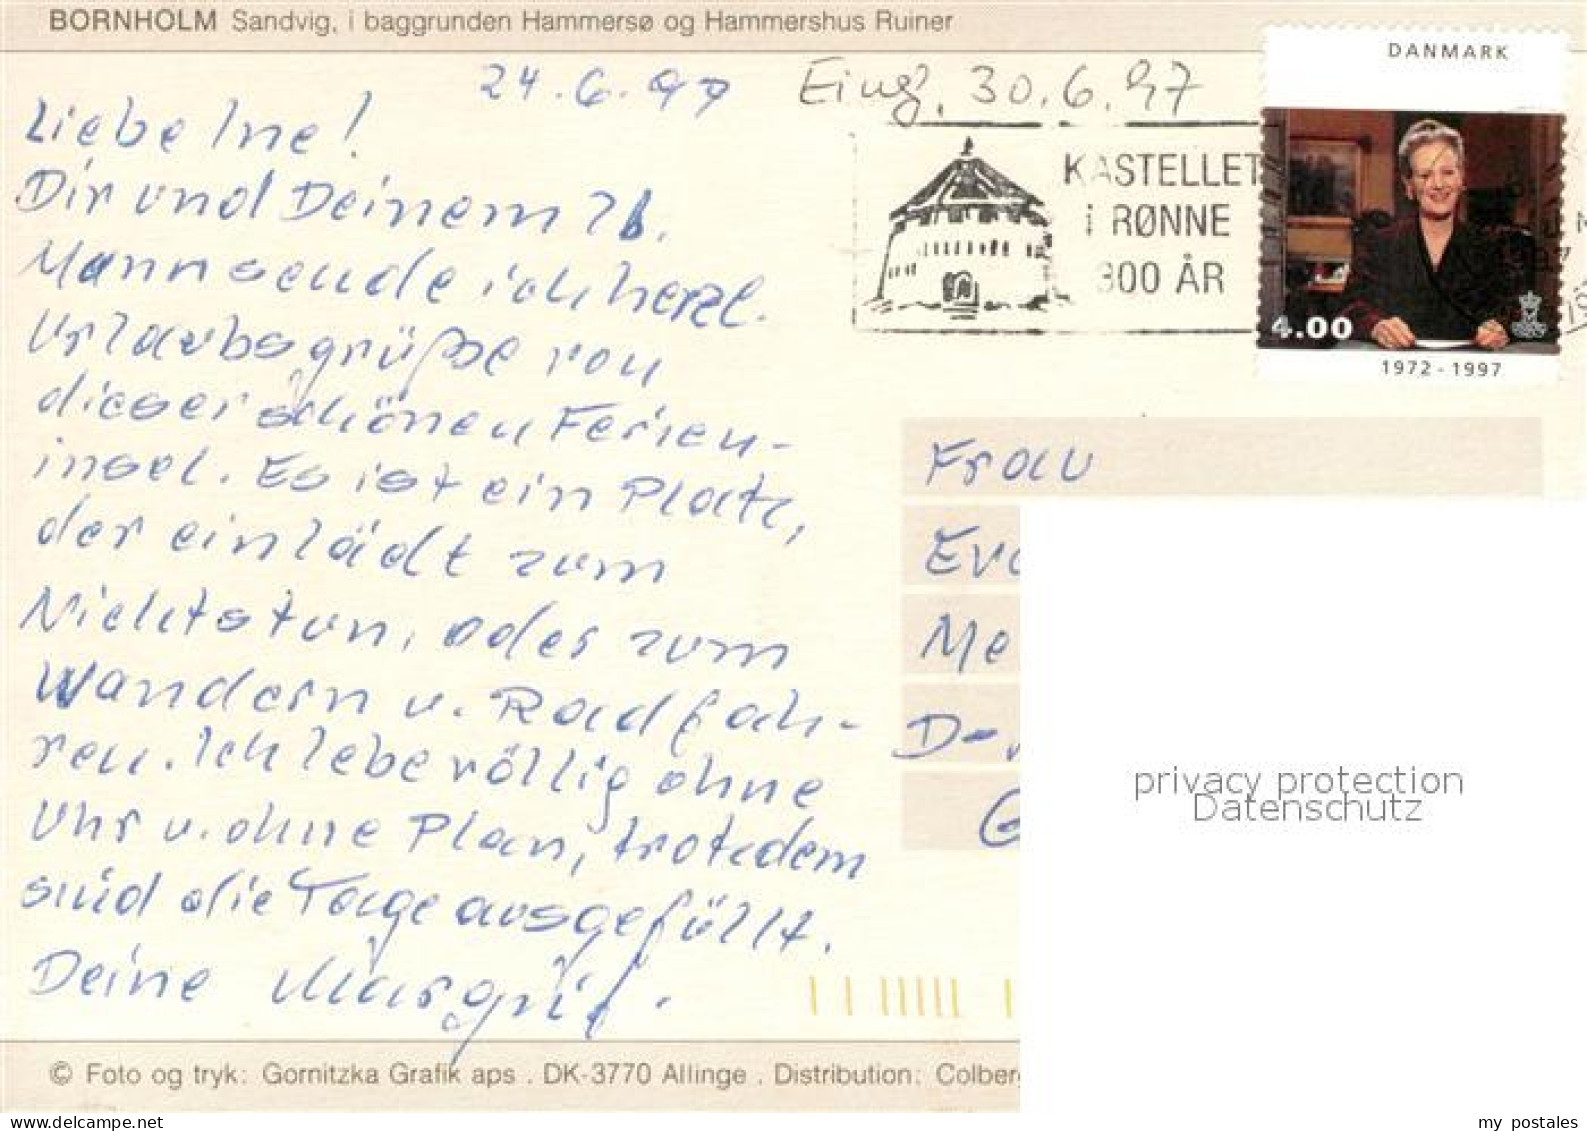 BORNHOLM Sandvig, i baggrunden Hammersø og Hammershus Ruiner
24.6.97
Eing. 30.6.97
DANMARK
KASTELLET
i RØNNE
300 ÅR
4.00
1972 - 1997
Liebe Ine!
Dir und Deinem lb.
Mann sende ich herzl.
Urlaubsgrüße von
dieser schönen Ferien-
insel. Es ist ein Platz,
der einlädt zum
Nichtstun, oder zum
Wandern u. Radfah-
ren. Ich lebe völlig ohne
Uhr u. ohne Plan, trotzdem
sind die Tage ausgefüllt.
Deine Margrit.
Frau
Me
D-
G
privacy protection
Datenschutz
© Foto og tryk: Gornitzka Grafik aps . DK-3770 Allinge . Distribution: Colber
www.delcampe.net
my_postales